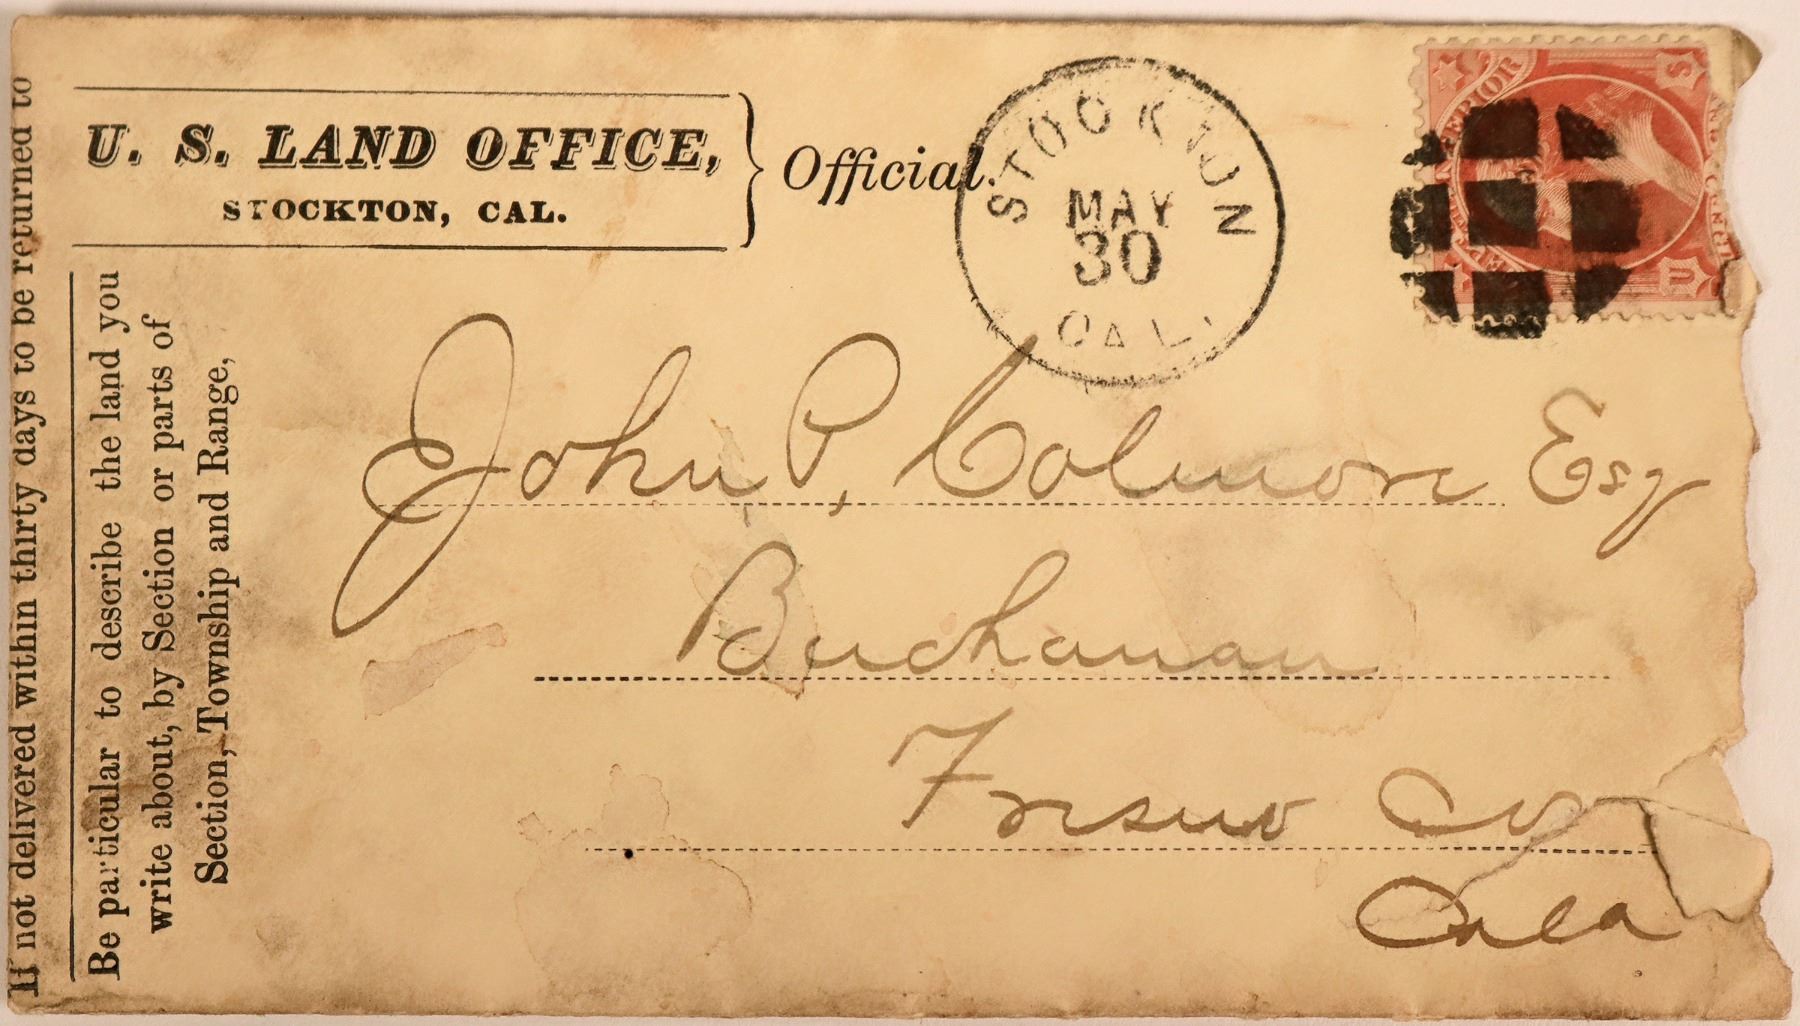 U. S. LAND OFFICE,
STOCKTON, CAL.
Official.
STOCKTON
MAY
30
CAL.
U S
John P. Colmore Esq
Buchanan
Fresno Co
Cala
If not delivered within thirty days to be returned to
Be particular to describe the land you
write about, by Section or parts of
Section, Township and Range,